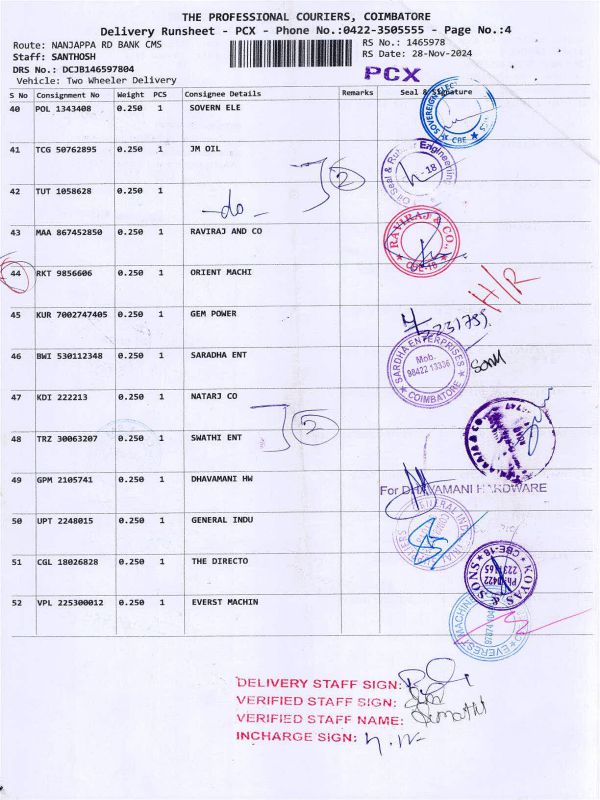 THE PROFESSIONAL COURIERS, COIMBATORE
Delivery Runsheet - PCX - Phone No.:0422-3505555 - Page No.:4
Route: NANJAPPA RD BANK CMS RS No.: 1465978
Staff: SANTHOSH RS Date: 28-Nov-2024
DRS No.: DCJB146597804
Vehicle: Two Wheeler Delivery PCX
S No Consignment No Weight PCS Consignee Details Remarks Seal & Signature
40 POL 1343408 0.250 1 SOVERN ELE
CBE
41 TCG 50762895 0.250 1 JM OIL
Engineering
h-18
2
42 TUT 1058628 0.250 1
-do-
43 MAA 867452850 0.250 1 RAVIRAJ AND CO RAVIRAJ & CO.,
CBE-18
44 RKT 9856606 0.250 1 ORIENT MACHI
H/R
45 KUR 7002747405 0.250 1 GEM POWER
46 BWI 530112348 0.250 1 SARADHA ENT SARDHA ENTERPRISES
Mob.
98422 13336
COIMBATORE
47 KDI 222213 0.250 1 NATARJ CO
2
48 TRZ 30063207 0.250 1 SWATHI ENT
49 GPM 2105741 0.250 1 DHAVAMANI HW
For DHAVAMANI HARDWARE
50 UPT 2248015 0.250 1 GENERAL INDU
51 CGL 18026828 0.250 1 THE DIRECTO KOYAS & SONS
CBE-18
52 VPL 225300012 0.250 1 EVERST MACHIN
DELIVERY STAFF SIGN:
VERIFIED STAFF SIGN:
VERIFIED STAFF NAME:
INCHARGE SIGN: